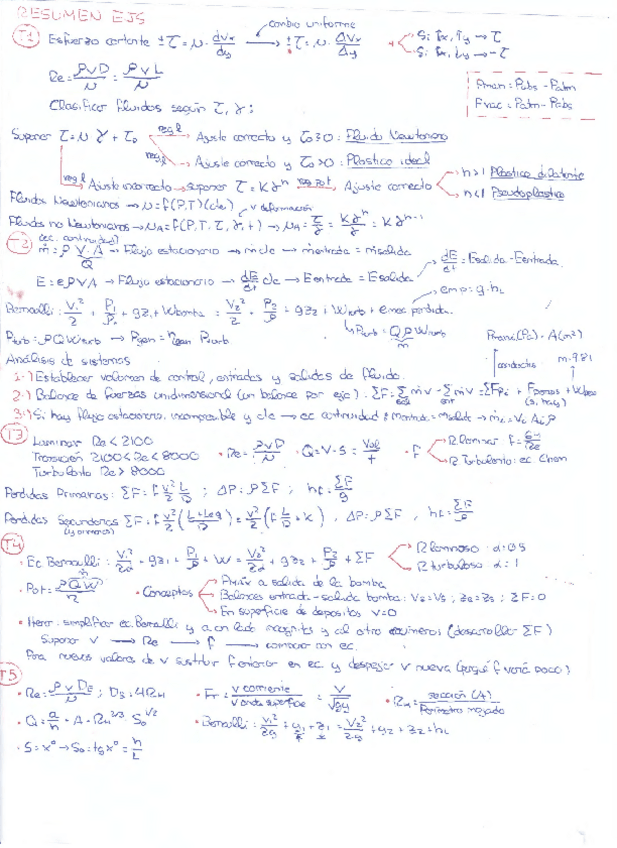 RESUMEN EJS
T1 Esfuerzo cortante ±τ = μ · dVx/dy → cambio uniforme ±τ = μ · ΔVx/Δy
Si îx, îy → τ
Si îx, îy → -τ
Re = ρVD/μ = ρVL/μ
Pman = Pabs - Patm
Pvac = Patm - Pabs
Clasificar fluidos según τ, γ:
Suponer τ = μ γ + τ0 regl Ajuste correcto y τ0≃0 : Fluido Newtoniano
regl Ajuste correcto y τ0>0 : Plastico ideal
regl Ajuste incorrecto → suponer τ = K γ^n reg Pot Ajuste correcto
n>1 Plastico dilatante
n<1 Pseudoplastico
Fluidos Newtonianos → μ = f(P,T) (cte)
v deformación
Fluidos no Newtonianos → μA = f(P,T,τ,γ,t) → μA = τ/γ = Kγ^n/γ = K γ^n-1
T2 (ec. continuidad)
ṁ = ρ V A → Flujo estacionario → ṁ cte → ṁentrada = ṁsalida
Q
E = eρVA → Flujo estacionario → dE/dt cte → Eentrada = Esalida
dE/dt = Esalida - Eentrada
emp = g·hL
Bernoulli: V1²/2 + P1/ρ + gz1 + Wbomba = V2²/2 + P2/ρ + gz2 + Wturb + emec perdida.
Pturb = ρQWturb → Pgen = ηgen Pturb
Pturb = QρWturb
ṁ
Pmani(Pa) · A(m²)
m·9'81
Análisis de sistemas
1·) Establecer volumen de control, entradas y salidas de fluido.
2·) Balance de fuerzas unidimensional (un balance por eje): ΣF = Σ ṁv - Σ ṁv = ΣFpi + Fpesos +
3·) Si hay flujo estacionario, incompresible y cte → ec continuidad
T3 Laminar Re < 2100
Transición 2100 < Re < 8000
Turbulento Re > 8000
· Re = ρVD/μ · Q = V·S = Vol/t · f
R laminar f = 64/Re
R Turbulento: ec Chen
Perdidas Primarias: ΣF = f V²/2 L/D ; ΔP = ρΣF ; hf = ΣF/g
Perdidas Secundarias ΣF = f V²/2 (L+Leq/D) = V²/2 (f L/D + K), ΔP = ρΣF, hf = ΣF/
T4
· Ec Bernoulli: V1²/2α + gz1 + P1/ρ + W = V2²/2α + gz2 + P2/ρ + ΣF
R laminar: α = 0'5
R turbulento: α = 1
ṁ
· Pot = ρQW/η · Conceptos
a salida de la bomba
Balances entrada - salida bomba: Ve = Vs ; ze = zs ; ΣF = 0
En superficie de depositos V = 0
· Iterar: simplificar ec. Bernoulli y a un lado incognitas y al otro numeros (desarrollar ΣF)
Suponer v → Re → f → comparar con ec.
Para nuevos valores de v sustituir f anterior en ec y despejar v nueva (porque f varía poco)
T5
· Re = ρVDe/μ ; De = 4RH · Fr = v corriente/v onda superficie = V/√gy · RH = sección (A)/Perimetro mojado
· Q = a/n · A · RH^2/3 S0^1/2 · Bernoulli: V1²/2g + y1 + z1 = V2²/2g + y2 + z2 + hL
· S = x° → S0 = tg x° = h/L